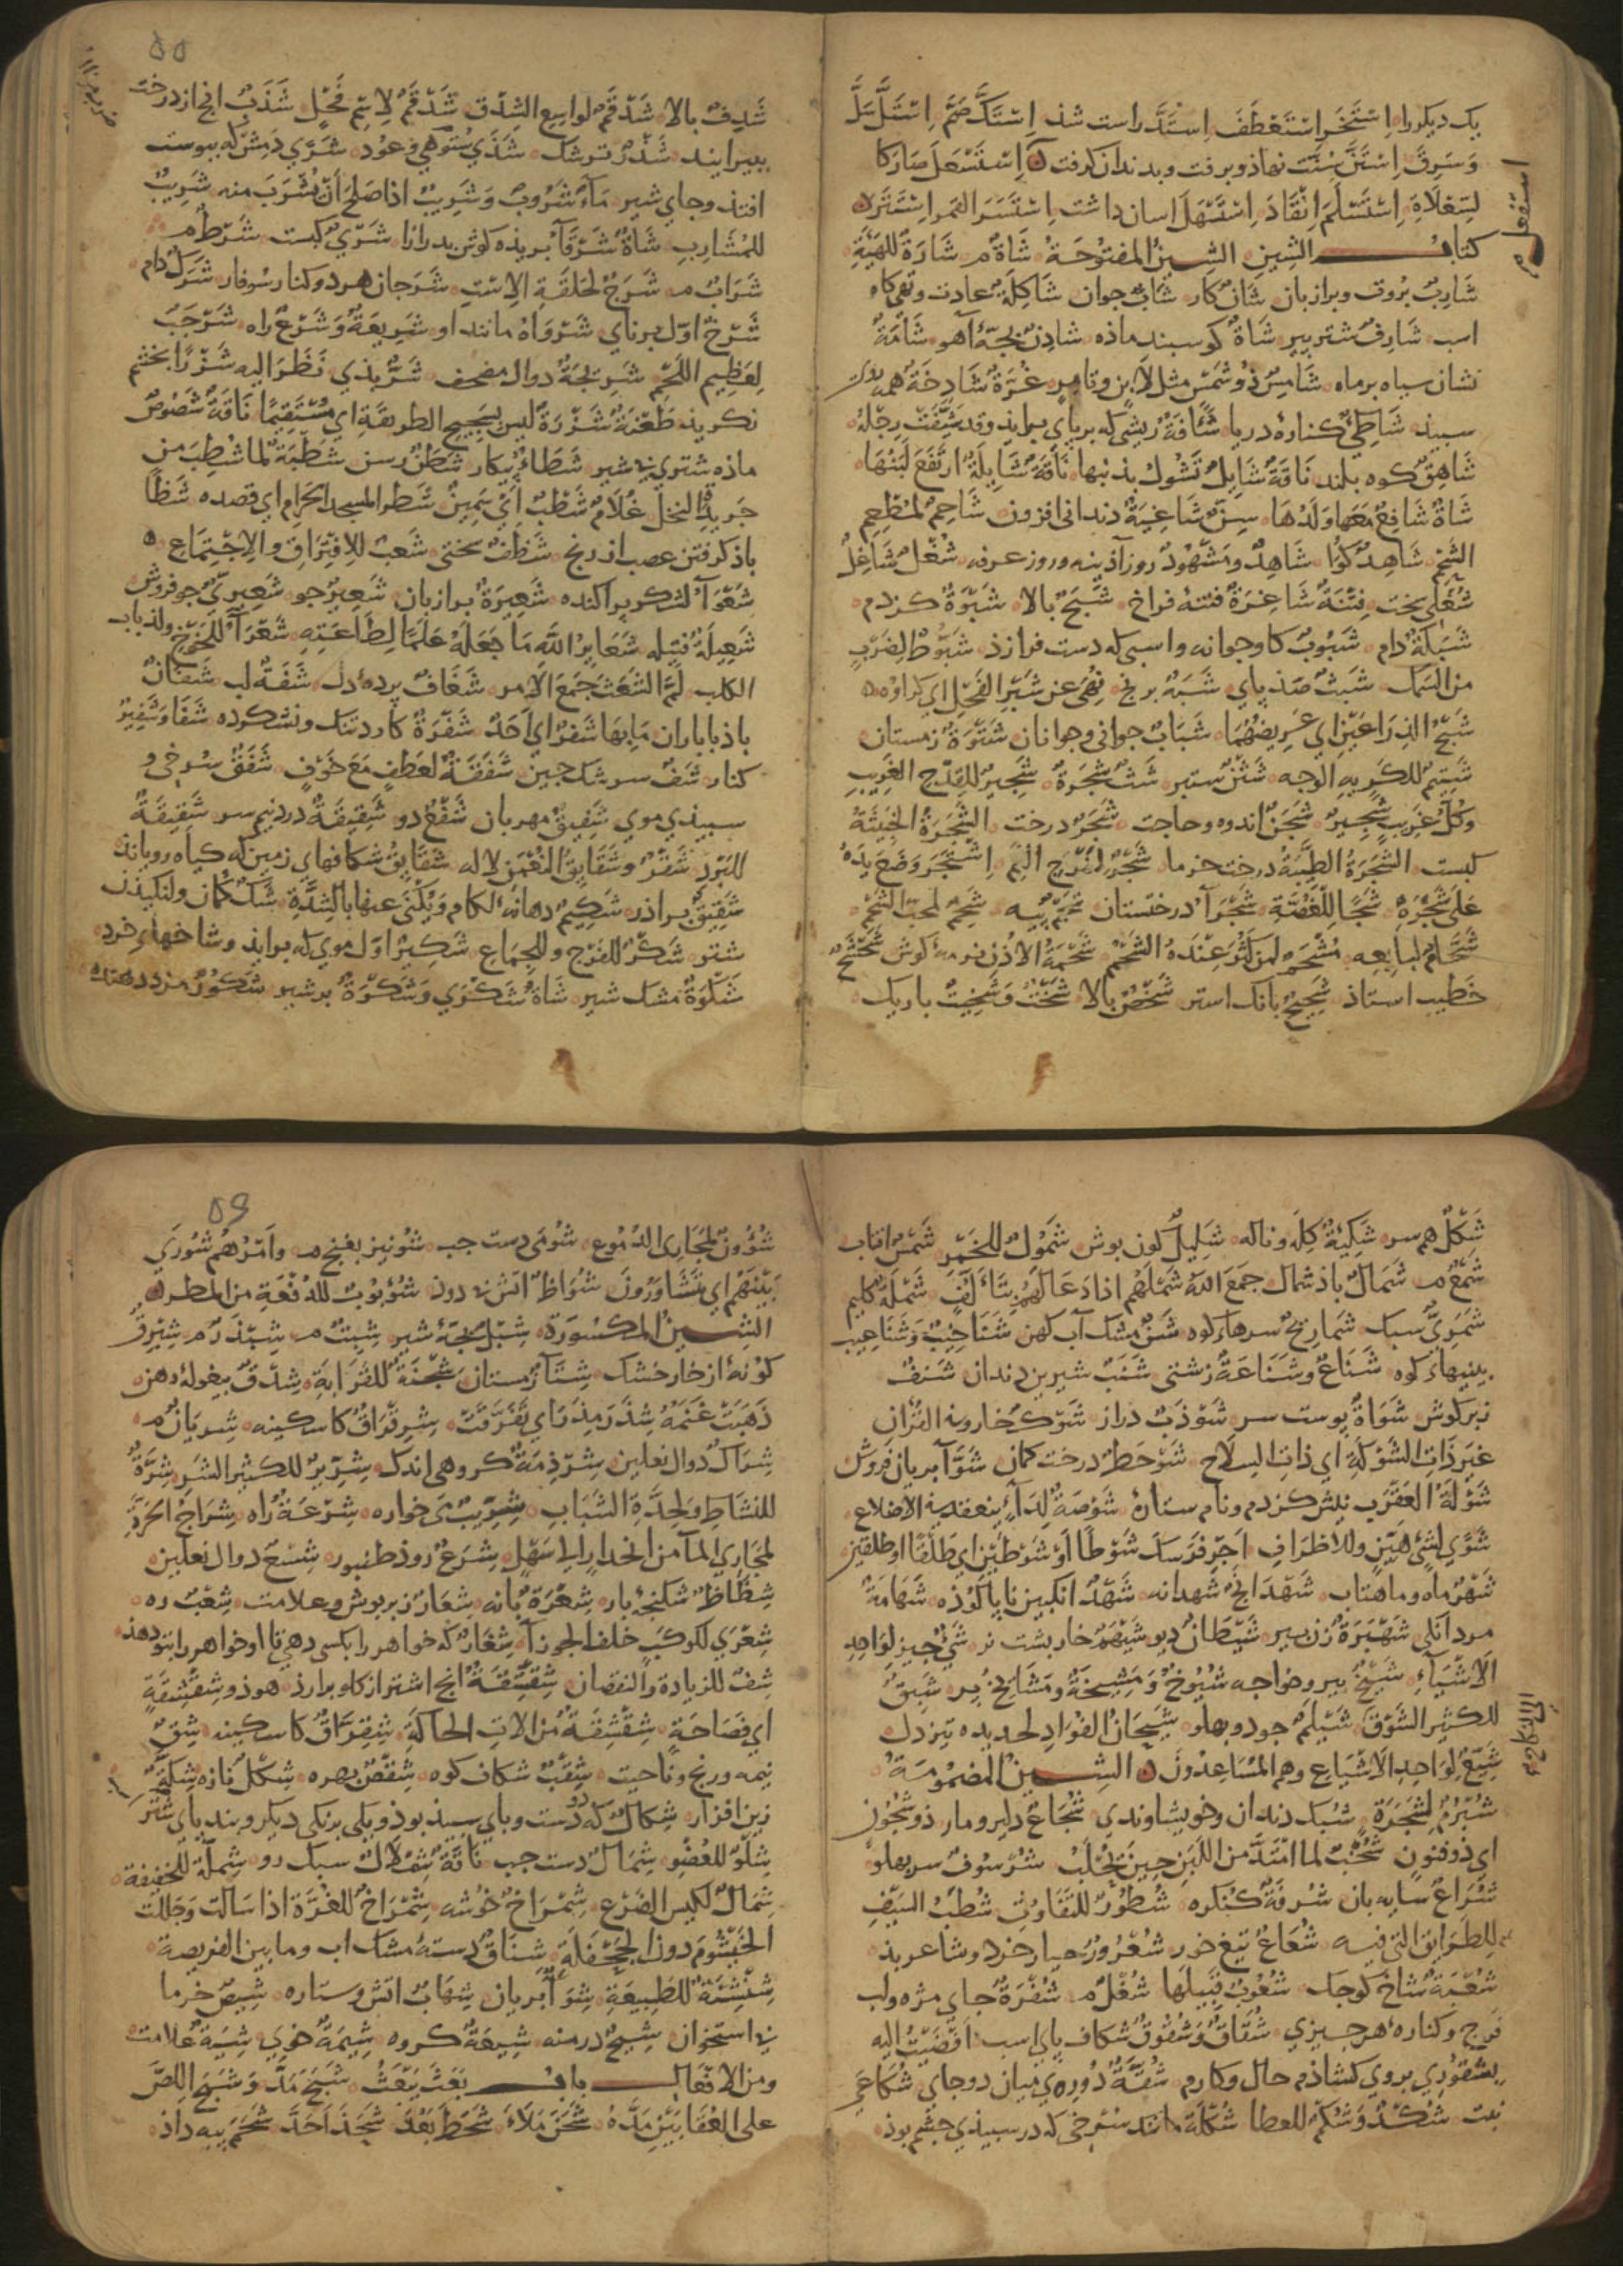 یک دیکررا اِسْتَخَرَ اِسْتَعْطَفَ اِسْتَدَّ راست شذ اِسْتَكَّ صَمَّ اِسْتَلَّ سَلَّ
وَسَرِقَ اِسْتَنَّ سُنّت نهاذ و برفت و بدندان کرفت اِسْتَسْعَلَ صَارَ كَا
لسِّعْلَاةِ اِسْتَسْلَمَ اِنْقَادَ اِسْتَسْهَلَ اسان داشت اِسْتَسَرَ القمر اِسْتَتَرَ
كتاب الشِين الشين المفتوحة شَاةٌ م شَارَةٌ للهَيْئَةِ
شَارِبٌ بروت و برازبان شَانٌ کار شَابٌّ جوان شَاكِلَةٌ عادت و تهی کاه
اسب شَارِفٌ شتر پیر شَاةٌ کوسبند ماذه شادِنٌ بچۀ آهو شَامَةٌ
نشان سیاه بر ماه شَامِسٌ ذُو شَمْسٍ مثل لَابِنٍ و تَامِرٍ غُرَّةٌ شَادِخَةٌ همه روی
سبیذ شَاطِئٌ کنارۀ دریا شَأفَةٌ ریشی که بر پای برایذ وقد شَئِفَتْ رِجْلُهُ
شَاهِقٌ کوه بلند نَاقَةٌ شَايِلٌ تَشُولُ بذنبها نَاقَةٌ شَايِلَةٌ ارتَفَعَ لَبَنُهَا
شَاةٌ شَافِعٌ مَعَها وَلَدُهَا سِنٌّ شَاغِيَةٌ دندانی افزون شَاحِمٌ لمُطْعِمِ
الشَّحْمِ شَاهِدٌ کوا شَاهِدٌ ومَشْهُودٌ روز آذینه و روز عرفه شُغْلٌ شَاغِلٌ
شغلی سخت فِتْنَةٌ شَاغِرَةٌ فتنۀ فراخ شَبَحٌ بالا شَبْوَةٌ کزدم
شَبَكَةٌ دام شَبُوبٌ کاو جوانه و اسبی که دست فرازذ شَبُّوطٌ لِضَرْبٍ
من السَمَكِ شَبَثٌ صذ پای شَبَهٌ برنج نُهِيَ عن شَبْرِ الفَحْلِ ای کراوه
شَبْحُ الذِرَاعَيْنِ ای عَرِيضُهُمَا شَبَابٌ جوانی و جوانان شَتْوَةٌ زمستان
شَتِيمٌ للكَرِيهِ الوجه شَثْنٌ ستبر شَثٌّ شَجَرَةٌ شَجِيرٌ للقِدْحِ الغَرِيبِ
وَكُلُّ غَرِيبٍ شَجِيرٌ شَجَنٌ اندوه و حاجت شَجَرٌ درخت الشَّجَرَةُ الخَبِيثَةُ
کبست الشَّجَرَةُ الطَيِّبَةُ درخت خرما شَجْرٌ لمَفْرَجِ الفَمِ اِشْتَجَرَ وَضَعَ يَدَهُ
عَلَى شَجْرَهِ شَجًا لِلْغُصَّةِ شَجْرَآءُ درختستان شَحْمٌ پیه شَحِمٌ لمحبّ الشَّحْمِ
شَحَّامٌ لبايعه مُشْحِمٌ لمن كَثُرَ عِنْدَهُ الشَّحْم شَحْمَةُ الاُذُنِ نرمۀ کوش شَحْشَحٌ
خَطِيبِ استاذ شَحِيجٌ بانک استر شَخْصٌ بالا شَخْتٌ وَشَخِيتٌ باریک
استفعال
٥٥
شَدِفٌ بالا شَدْقَمٌ لواسع الشِدْق شَدْقَمٌ لاسمِ فَحْلٍ شَذَبٌ انج از درخت
ببیرایند شَذْرٌ
افتذ و جای شیر مَآءٌ شَرُوبٌ وَشَرِيبٌ اذا صَلَحَ اَنْ يُشْرَبَ منه شَرِيبٌ
للمُشَارِبِ شَاةٌ شَرْقَآءُ بریذه کوش بدرازا شَرْيٌ کبست شَرْطٌ م
شَرَابٌ م شَرَجٌ لحَلَقَةِ الاِسْتِ شَرَجان هر دو کنار سوفار شَرَكٌ دام
شَرْخٌ اوّل برنای شَرْوَاهُ مانند او شَرِيعَةٌ وَشَرْعٌ راه شَرْجَبٌ
لِعَظِيمِ اللَّحْمِ شَرِيجَةٌ شَرٌّ بذی نَظَرَ اليه شَزْرًا بخشم
نکریذ طَعْنَةٌ شَزْرَةٌ ليس بِسَجِيحِ الطريقَةِ ای مُسْتَقِيمًا نَاقَةٌ شَصُوصٌ
ماذه شتری بی شیر شَطَاءٌ شَطَنٌ رسن شَطْبَةٌ لما شُطِبَ من
جَرِيدِ النَّخْلِ غُلَامٌ شَطْبٌ اَيْ سَمِينٌ شَطْرَ المسجد الحرام ای قصده شَظًا
باذ کرفتن عصب از رنج شَظَفٌ سختی شَعْبٌ لِلافْتِرَاقِ والاِجْتِمَاعِ
شَعْوَآءُ لشکر پراکنده شَعِيرَةٌ برازبان شَعِيرٌ جو شَعِيرِيٌّ جو فروش
شَعِيلَةٌ فتیله شَعَايِرُ اللَّهِ مَا جَعَلَهُ عَلَمًا لِطَاعَتِهِ شَعْرَآءُ للخَوْخِ ولذباب
الكلب لَمَّ الشَعَثَ جَمَعَ الاَمر شَغَافٌ پردۀ دل شَفَةٌ لب شَفَّانٌ
باذ با باران مَا بِهَا شَفْرٌ ای اَحَدٌ شَفْرَةٌ کارد تنک و نشکرده شَفَا وَشَفِيرٌ
کنار شَفٌّ سر شک جبین شَفَقَةٌ لعَطْفٍ مَعَ خَوْفٍ شَفَقٌ سرخی و
سبیذی موی شَفِيقٌ مهربان شَفْعٌ دو شَقِيقَةٌ درد نیم سر شَقِيقَةٌ
للبَرْدِ شَقِرٌ وشَقَايِقُ النُعْمَنِ لاله شَقَايِقُ شکافهای زمین که کیاه رویاند
شَقِيقٌ براذر شَكِيمٌ دهانۀ لکام وَيُكْنَى عنها بالشِدَّةِ شَكٌّ کمان و لنکیذن
شتر شَكْرٌ للفَرْجِ وللجِمَاعِ شَكِيرٌ اوّل موی که برایذ و شاخهای خرد
شَكْوَةٌ مشک شیر شَاةٌ شَكْرَى وَشَكِرَةٌ پر شیر شَكُورٌ مزد دهنده
شَكْلٌ هم سر شَكِيَّةٌ کله و ناله شَلِيلٌ کون پوش شَمُولٌ للخَمْرِ شَمْسٌ افتاب
شَمْعٌ م شَمَالٌ باذ شمال جمَعَ اللهُ شَمْلَهُم اذا دَعَا لَهُمْ بتَأَلُّفٍ شَمْلَةٌ کلیم
شَمَرِيٌّ سبک شَمَارِيخٌ سرهای کوه شَنٌّ مشک آب کهن شَنَاخِيبُ وَشَنَاعِيبُ
بینیهای کوه شَنَاعٌ وشَنَاعَةٌ زشتی شَنَبٌ شیرین دندان شَنْفٌ
زبر کوش شَوَاةٌ پوست سر شَوْذَبٌ دراز شَوْكٌ خار وفي القرآن
غَيرَ ذَاتِ الشَّوْكَةِ ای ذاتِ السلاح شَوْحَطٌ درخت کمان شَوَّآءٌ بریان فروش
شَوْلَةُ العَقْرَبِ نیش کزدم و نام ستارۀ شَوْصَةٌ لِدَآءٍ ينعقد في الاضلاع
شَوًى لشَيْءٍ هَيِّنٍ وللاطرَافِ اَجْرِ فَرَسَكَ شَوْطًا اَوْ شَوْطَيْنِ ای طَلَقًا او طلقين
شَهْرٌ ماه و ماهتاب شَهْدَانَجُ شهدانه شَهْدٌ انکبین ناپالوذه شَهَامَةٌ
مردانکی شَهْبَرَةٌ زن پیر شَيْطَانٌ دیو شَيْهَمٌ خاربشت نر شَيْءٌ چیز لواحد
الاَشْيَآءِ شَيْخٌ پیر و خواجه شُيُوخٌ وَمَشِيخَةٌ ومَشَايِخُ پیر شَيِّقٌ
للكثير الشَوْقِ شَيْلَمٌ شَيْحَانُ الفُؤَادِ لحديده تیز دل
شَيْعٌ لِوَاحِدِ الاَشْيَاعِ وهم المُسَاعِدُونَ الشِين المضمُومَة
شُبْرُمٌ لشَجَرَةٍ شُجَاعٌ دلیر و مار ذو شُجُونٍ
ای ذو فنونٍ شُخْبٌ لما امتَدَّ من اللَّبَنِ حِينَ يُحْلَبُ شُرْسُوفٌ سر پهلو
شُرَاعٌ سایه بان شُرْفَةٌ کنکره شُطُورٌ للتفاوت شُطَبُ السَيْفِ
للطرايق التي فيه شُعَاعٌ تیغ خور شُعْرُورٌ خیار خرد و شاعر بذ
شُعْبَةٌ شاخ کوچک شُعُوبٌ شُغْلٌ م شُفْرَةٌ جای مژه و لب
فرج و کنارۀ هر چیزی شُقَاقٌ وَشُقُوقٌ شکاف پای اسب اَفْضَيْتُ اليه
بِشُقُورِي بر وی کشاذم حال و کارم شُقَّةٌ دوری میان دو جای شُكَاعَى
نبت شُكْدٌ وَشُكْمٌ للعطا شُكْلَةٌ مانند سرخی که در سبیذی چشم بوذ
شُؤُونٌ لمَجَارِى الدُمُوعِ شُوْمَى دست چپ شُونِيز بغنج م وَاَمْرُهُمْ شُورَى
بَيْنَهُمْ ای يَتَشَاوَرُونَ شُوَاظٌ اتش بی دود شُؤْبُوبٌ للدُفْعَةِ من المطر
الشِين المكسُورَة شِبْلٌ بچۀ شیر شِبِتٌّ م شِبْذَرٌ م شِبْرِقٌ
کونۀ از خار خشک شِتَآءٌ زمستان شِجْنَةٌ للقَرَابَةِ شِدْقٌ بیغولۀ دهن
ذَهَبَتْ غَنَمُهُ شِذَرَ مِذَرَ ای تَفَرَّقَتْ شِرْيَانٌ م
شِرَاكٌ دوال نعلین شِرْذِمَةٌ کروهی اندک شِرِّيرٌ للكثير الشَرِّ شِرَّةٌ
للنشَاطِ ولحِدَّةِ الشَّبَابِ شِرِّيبٌ می خواره شِرْعَةٌ راه شِرَاجُ الحَرَّةِ
لمجَارِي المآء من انحدارٍ الى سَهْلٍ شِرْعٌ روذ طنبور شِسْعٌ دوال نعلین
شِظَاظٌ شکنجۀ بار شِعْرَةٌ بانه شِعَارٌ زیر پوش و علامت شِعْبٌ ره
شِعْرَى لكوكَبٍ خَلْفَ الجوزآ شِغَارٌ که خواهر را بکسی دهی تا او خواهر را بتو دهذ
شِفٌّ للزيادة والنقصان شِقْشِقَةٌ انچ اشتر از کام برارذ هو ذو شِقْشِقَةٍ
ای فصَاحَةٍ شِقٌّ
نیمه و رنج و ناحیت شِقْبٌ شکاف کوه شِقْصٌ بهره
زین افزار شِكَالٌ
شِلْوٌ للعُضْوِ شِمَالٌ دست چپ نَاقَةٌ شِمْلَالٌ سبک رو شِمِلَّةٌ للخفيفة
شِمَالٌ لكيس الضَرْعِ شِمْرَاخٌ خوشه شِمْرَاخٌ للغُرَّةِ اذا سَالت وَجَللت
الخَيْشُومَ دون الجَحْفَلَةِ شِنَاقٌ دستۀ مشک اب وما بين الفريضة
شِنْشِنَةٌ للطَبِيعَةِ شِوَآءٌ بریان شِهَابٌ اتش و ستاره شِيصٌ خرما
بی استخوان شِيحٌ درمنه شِيعَةٌ کروه شِيمَةٌ خوی شِيَةٌ علامت
ومن الافعال باب بَعَثَ يَبْعَثُ شَبَحَ مَدَّ وَشَبَحَ اللِصَّ
على العُقَابَيْنِ مَدَّهُ شَحَنَ مَلَأَ شَحَطَ بَعُدَ شَحَذَ اَحَدَّ شَحَمَ پیه داذ
٥٦